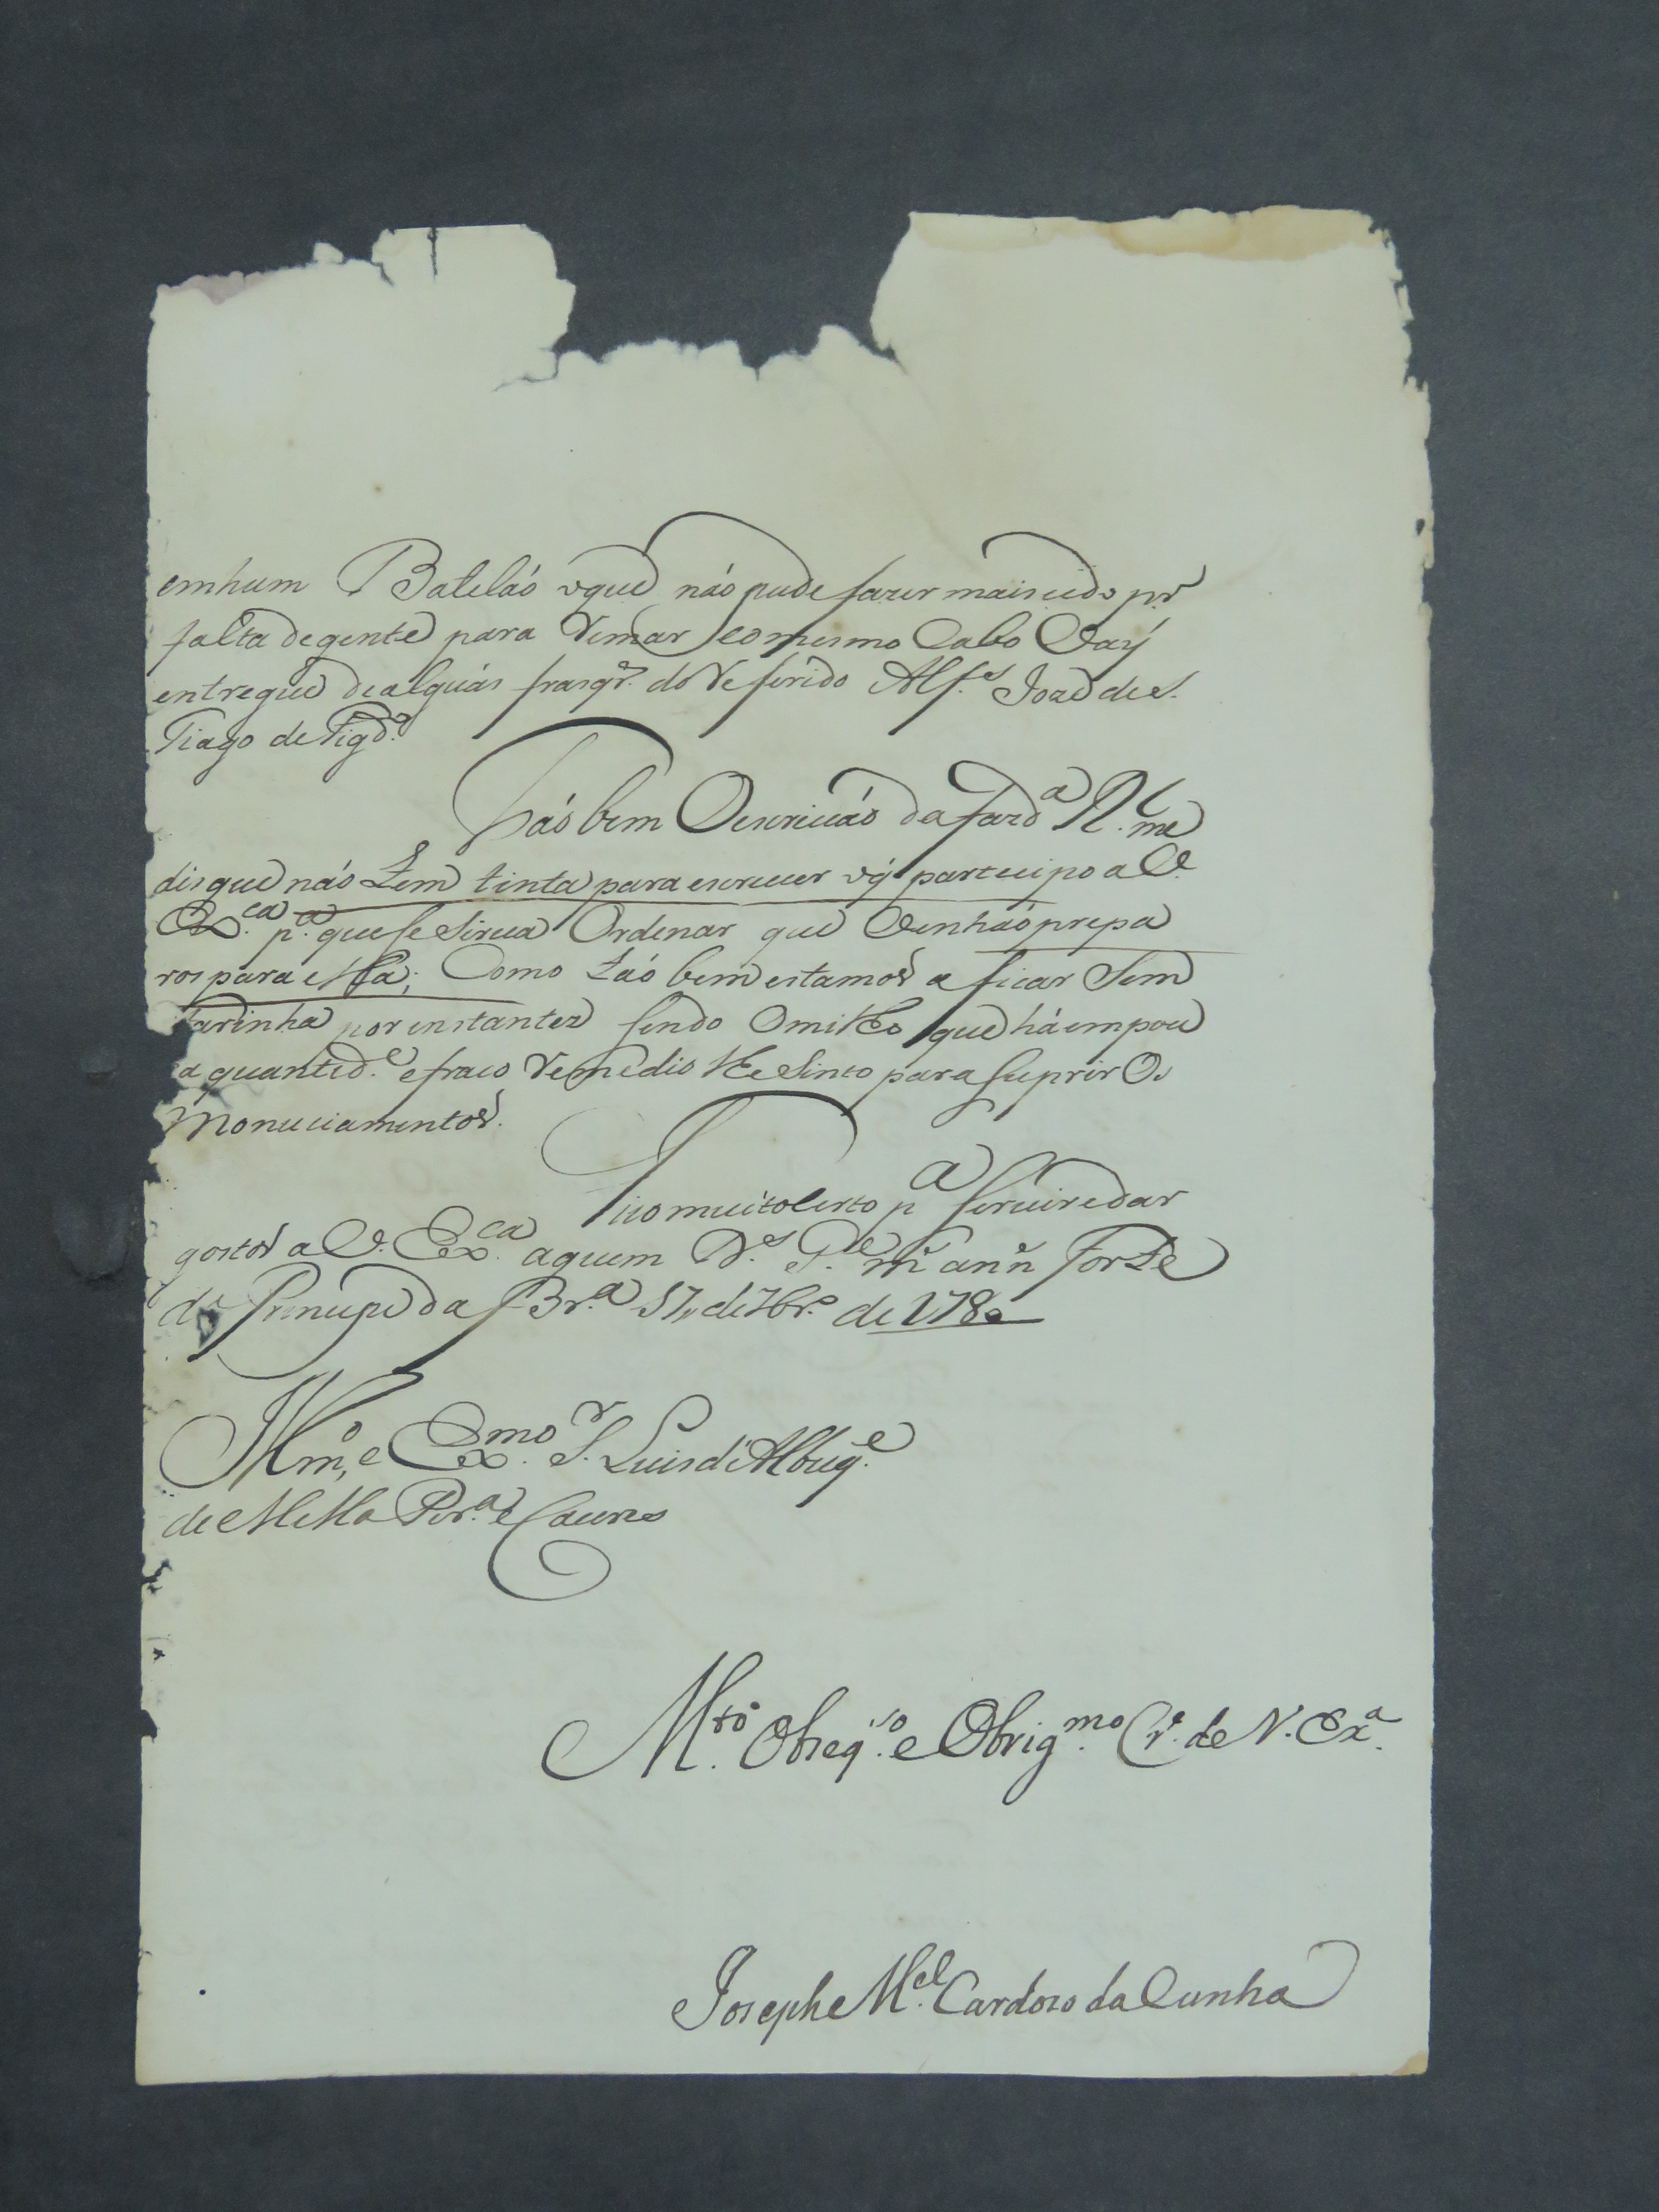 emhum Bateláo oque náo pude fazer mais cedo pr.
falta de gente para Remar, eo mesmo Cabo Vay
entregue de alguás frasqr.ᵃ do Referido Alf.ˢ Joaõ de S.
Tiago de Figd.º
Táo bem O escriváo da fazd.ᵃ R.ˡ me
dis que náo tem tinta para escrever o q̃ partecipo a V.
Ex.ᶜᵃ p.ᵃ que se sirva Ordenar que Venháo prepa
ros para ella; Como táo bem estamos a ficar Sem
farinha por instantes sendo O milho que há em pou
ca quantid.ᵉ e fraco Remedio lhe sinto para suprir Os
Monuciamentos.
Fico muito certo p.ᵃ servir e dar
gostos a V. Ex.ᶜᵃ aquem D.ˢ G.ᵉ m.ˢ ann.ˢ Forte
do Principe da Br.ᵃ 17,, de 7br.º de 1780
Illm.º, e Ex.ᵐᵒ S.ʳ Luis d'Albuq.ᵉ
de Mello Per.ᵃ e Caceres
M.ᵗᵒ Obseq.ˢᵒ e Obrig.ᵐᵒ Cr.º de V. Ex.ᵃ
Josephe M.ᵉˡ Cardozo da Cunha